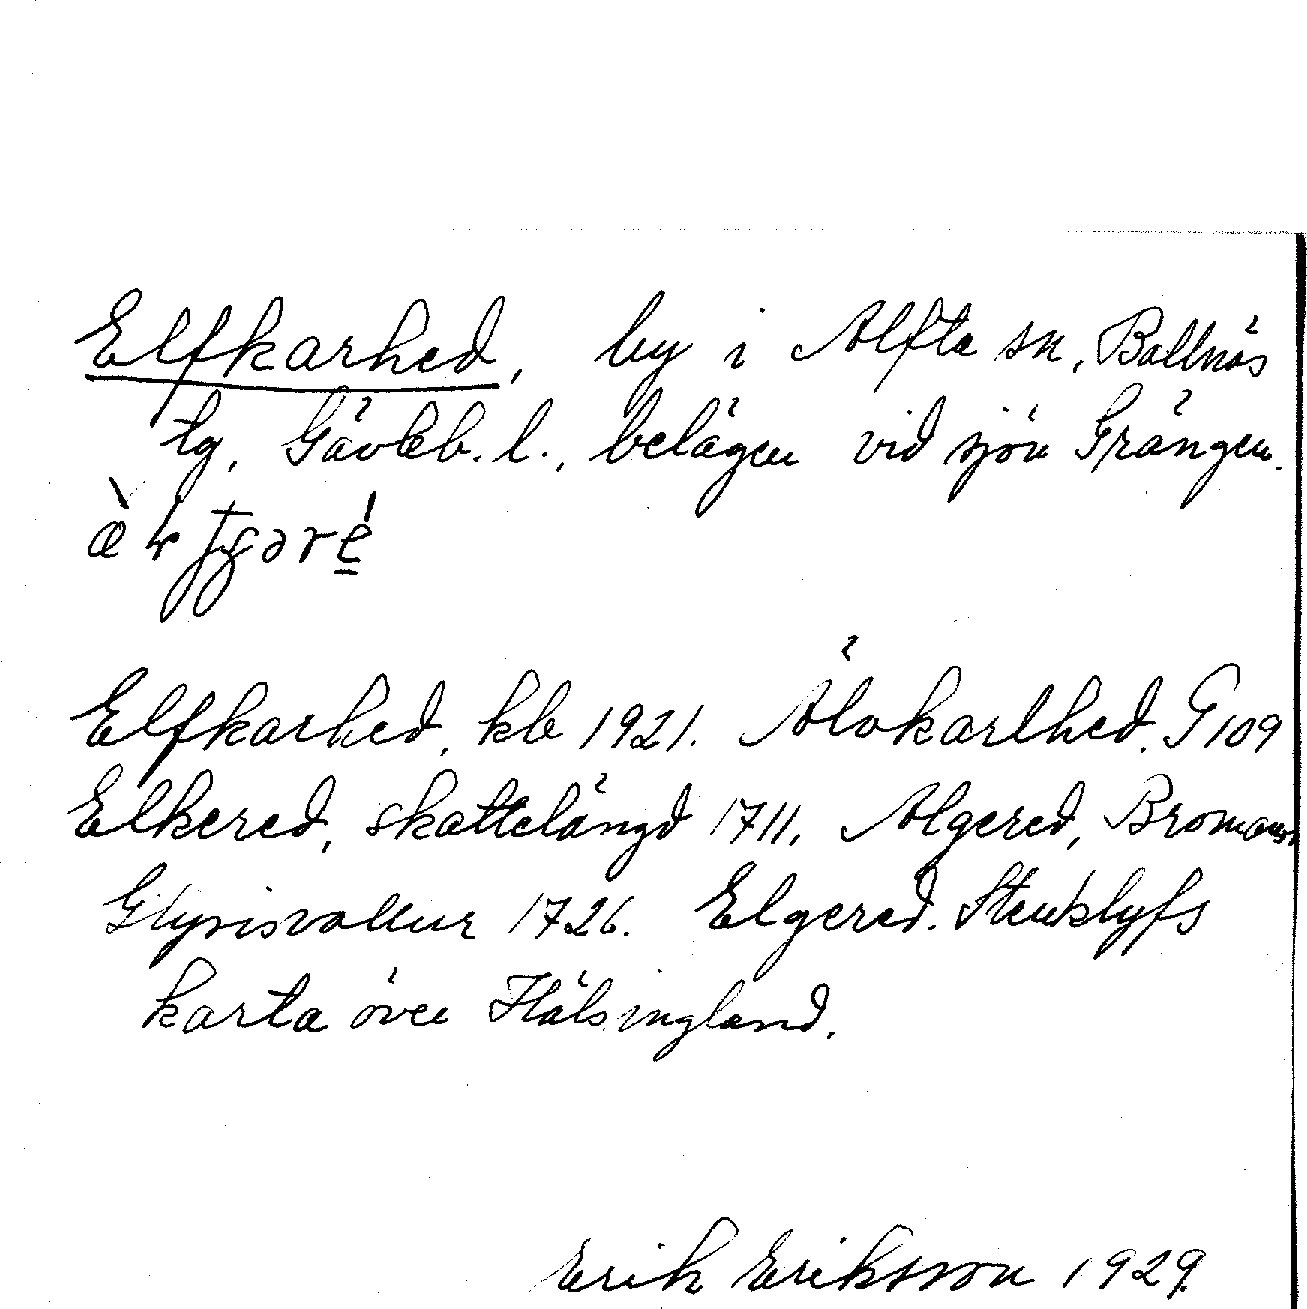 Elfkarhed, by i Alfta sn, Bollnäs
tg, Gävleb. l., belägen vid sjön Grängen.
Elfkarhed, kb 1921. Älvkarlhed. G 109
Elkered, skattelängd 1711. Algered, Bromans
Glysisvallur 1726. Elgered. Stenklyfs
karta över Hälsingland.
Erik Eriksson 1929.